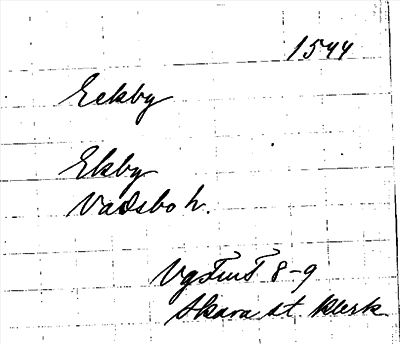 1544
Eekby
Ekby
Vadsbo h.
VgFmT 8-9
Skara st. klerk